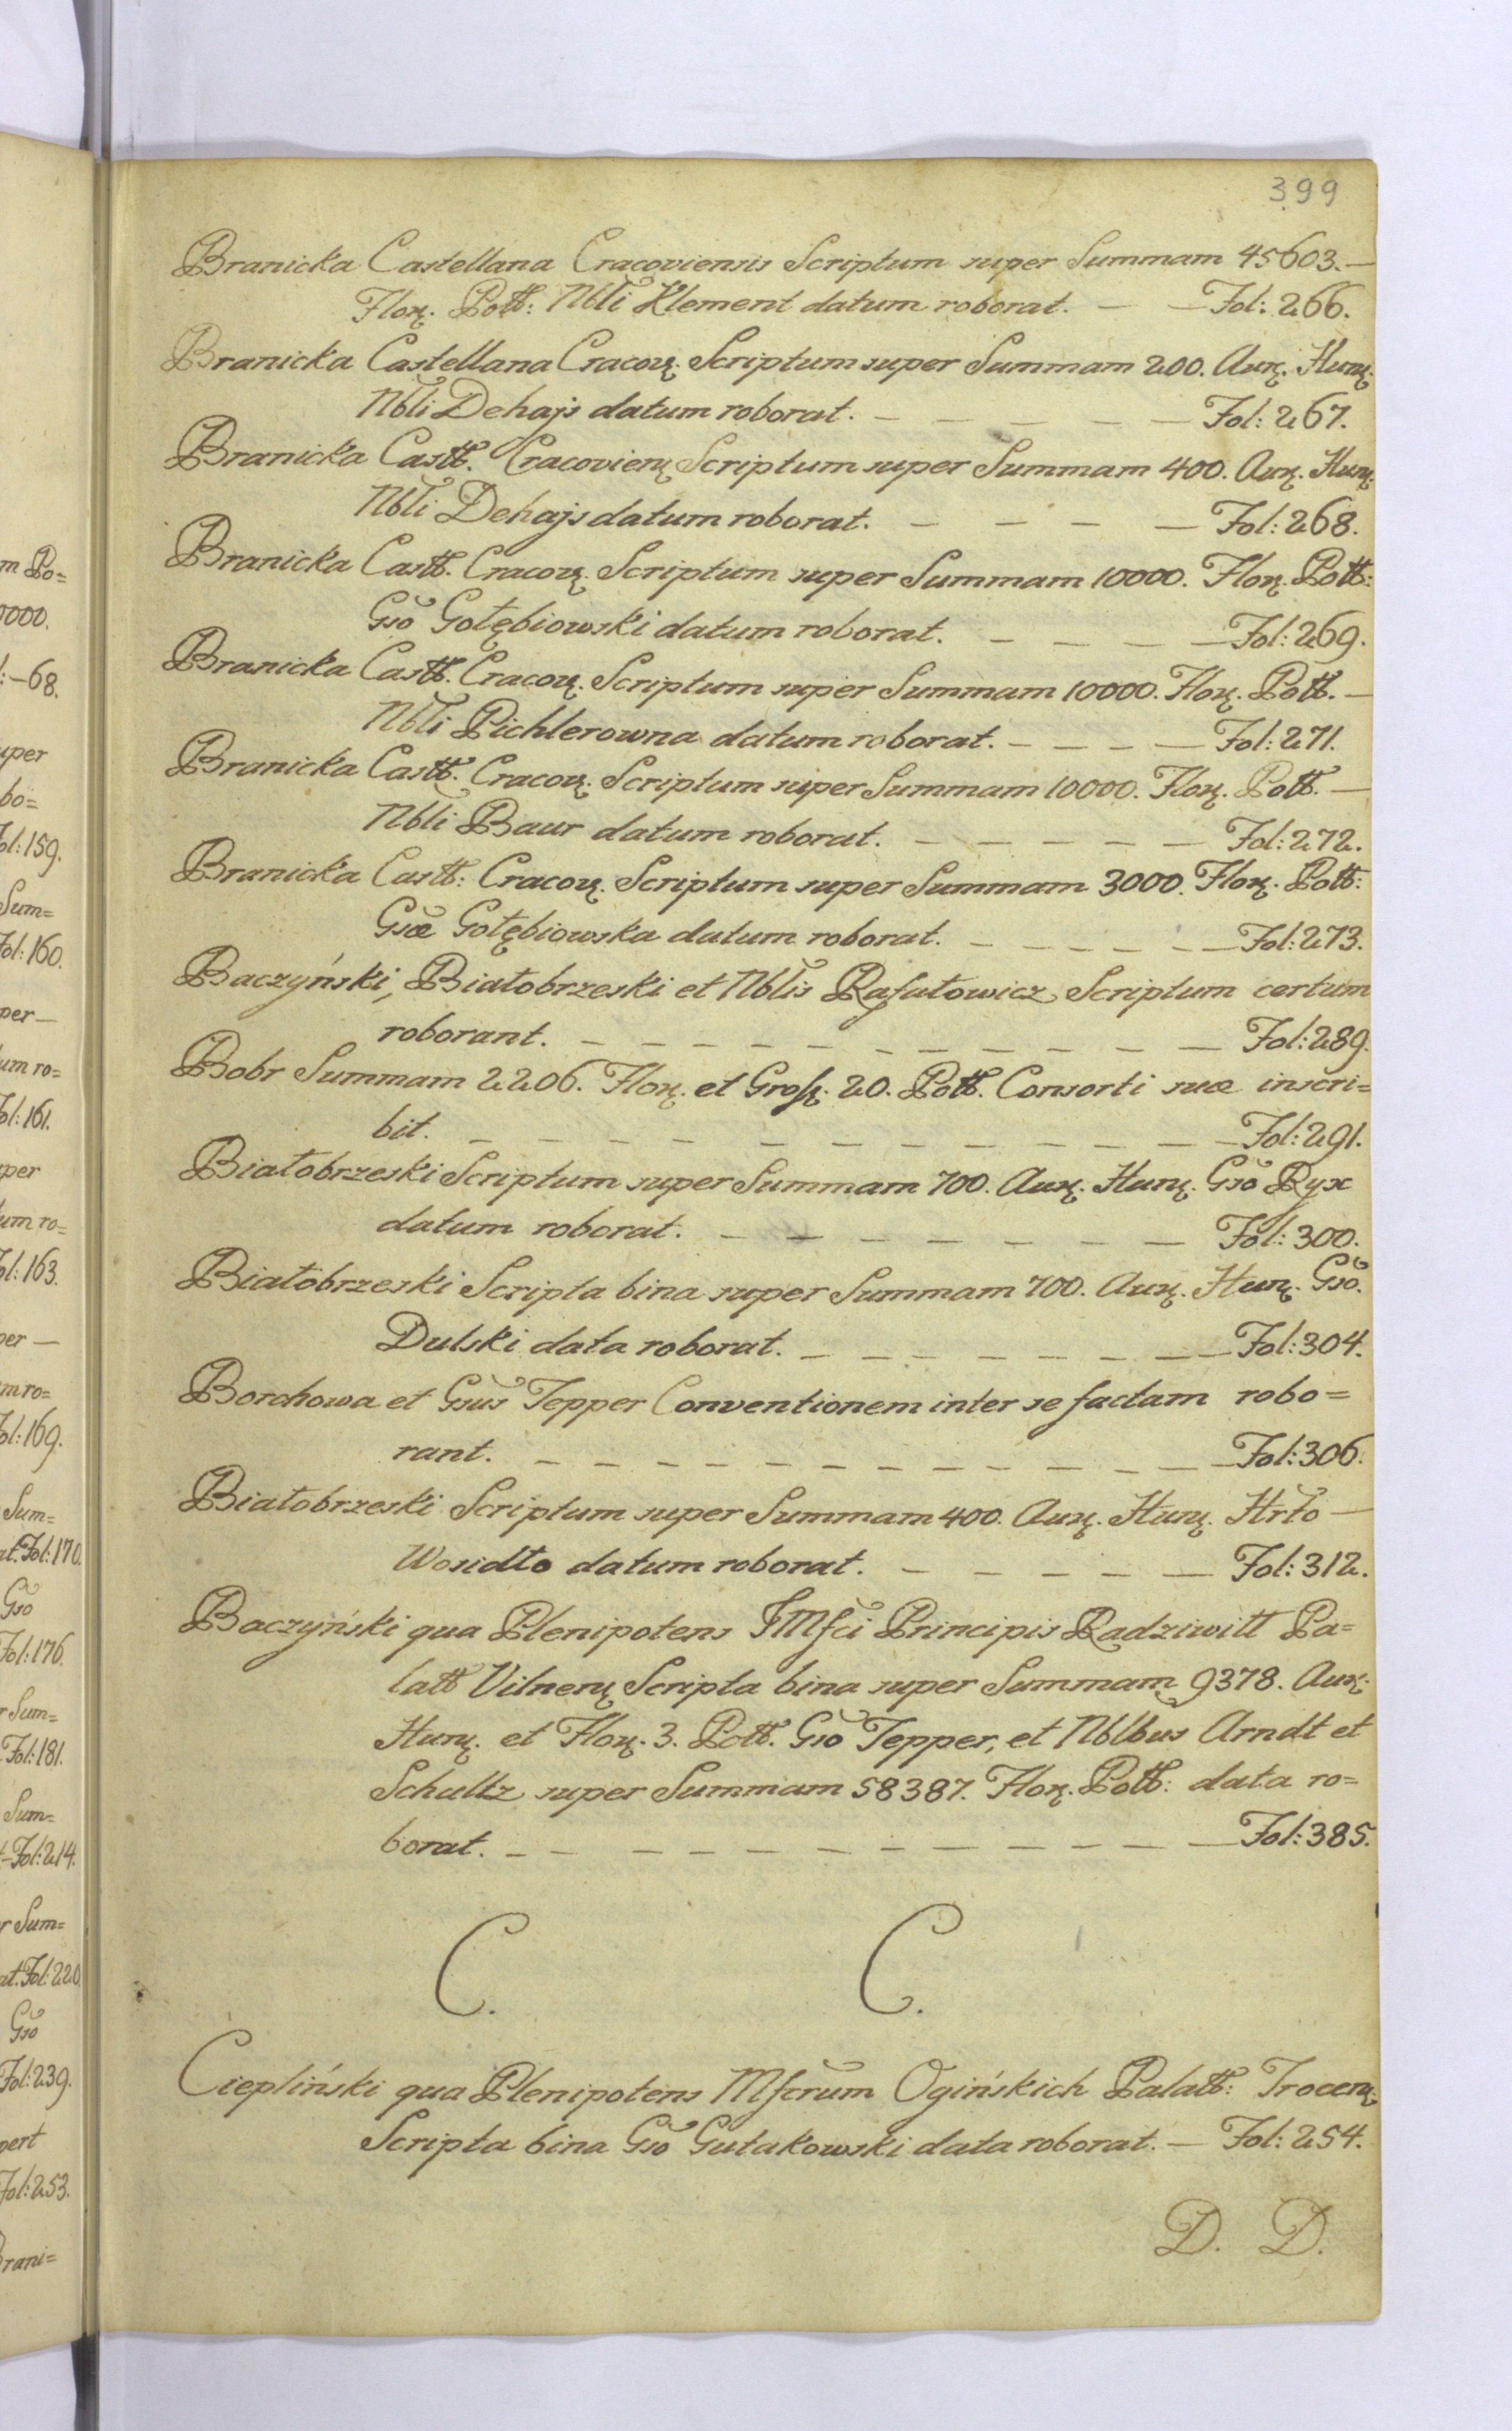 399
Branicka Castellana Cracoviensis Scriptum super Summam 45603. —
Flor. Poll: Nbli Klement datum roborat. — — Fol: 266.
Branicka Castellana Cracov. Scriptum super Summam 200. Aur. Hung.
Nbli Dehajs datum roborat. — — — — — Fol: 267.
Branicka Castt. Cracovien Scriptum super Summam 400. Aur. Hung.
Nbli Dehajs datum roborat. — — — — Fol: 268.
Branicka Castt. Cracov. Scriptum super Summam 10000. Flor. Poll:
Gso Gołębiowski datum roborat. — — — — Fol: 269.
Branicka Castt. Cracov. Scriptum super Summam 10000. Flor. Poll. —
Nbli Pichlerowna datum roborat. — — — — Fol: 271.
Branicka Castt. Cracov. Scriptum super Summam 10000. Flor. Poll. —
Nbli Baur datum roborat. — — — — — Fol: 272.
Branicka Castt: Cracov. Scriptum super Summam 3000. Flor. Poll:
Gsæ Gołębiowska datum roborat. — — — — — Fol: 273.
Baczyński, Białobrzeski et Nblis Rafałowicz Scriptum certum
roborant. — — — — — — — — — — Fol: 289.
Bobr Summam 2206. Flor. et Gross. 20. Poll. Consorti suæ inscri=
bit. — — — — — — — — — — — Fol: 291.
Białobrzeski Scriptum super Summam 700. Aur. Hung. Gso Ryx
datum roborat. — — — — — — — Fol: 300.
Białobrzeski Scripta bina super Summam 700. Aur. Hung. Gso.
Dulski data roborat. — — — — — — — Fol: 304.
Borchowa et Gsus Tepper Conventionem inter se factam robo=
rant. — — — — — — — — — — — Fol: 306.
Białobrzeski Scriptum super Summam 400. Aur. Hung. Hrto —
Wosidło datum roborat. — — — — — Fol: 312.
Baczyński qua Plenipotens Principis Radziwiłł Pa=
latt Vilnen Scripta bina super Summam 9378. Aur.
Hung. et Flor. 3. Poll. Gso Tepper, et Nblbus Arndt et
Schultz super Summam 58387. Flor. Poll: data ro=
borat. — — — — — — — — — — — Fol: 385.
C. C.
Ciepliński qua Plenipotens Mfcrum Ogińskich Palatt: Trocen.
Scripta bina Gso Gutakowski data roborat. — Fol: 254.
D. D.